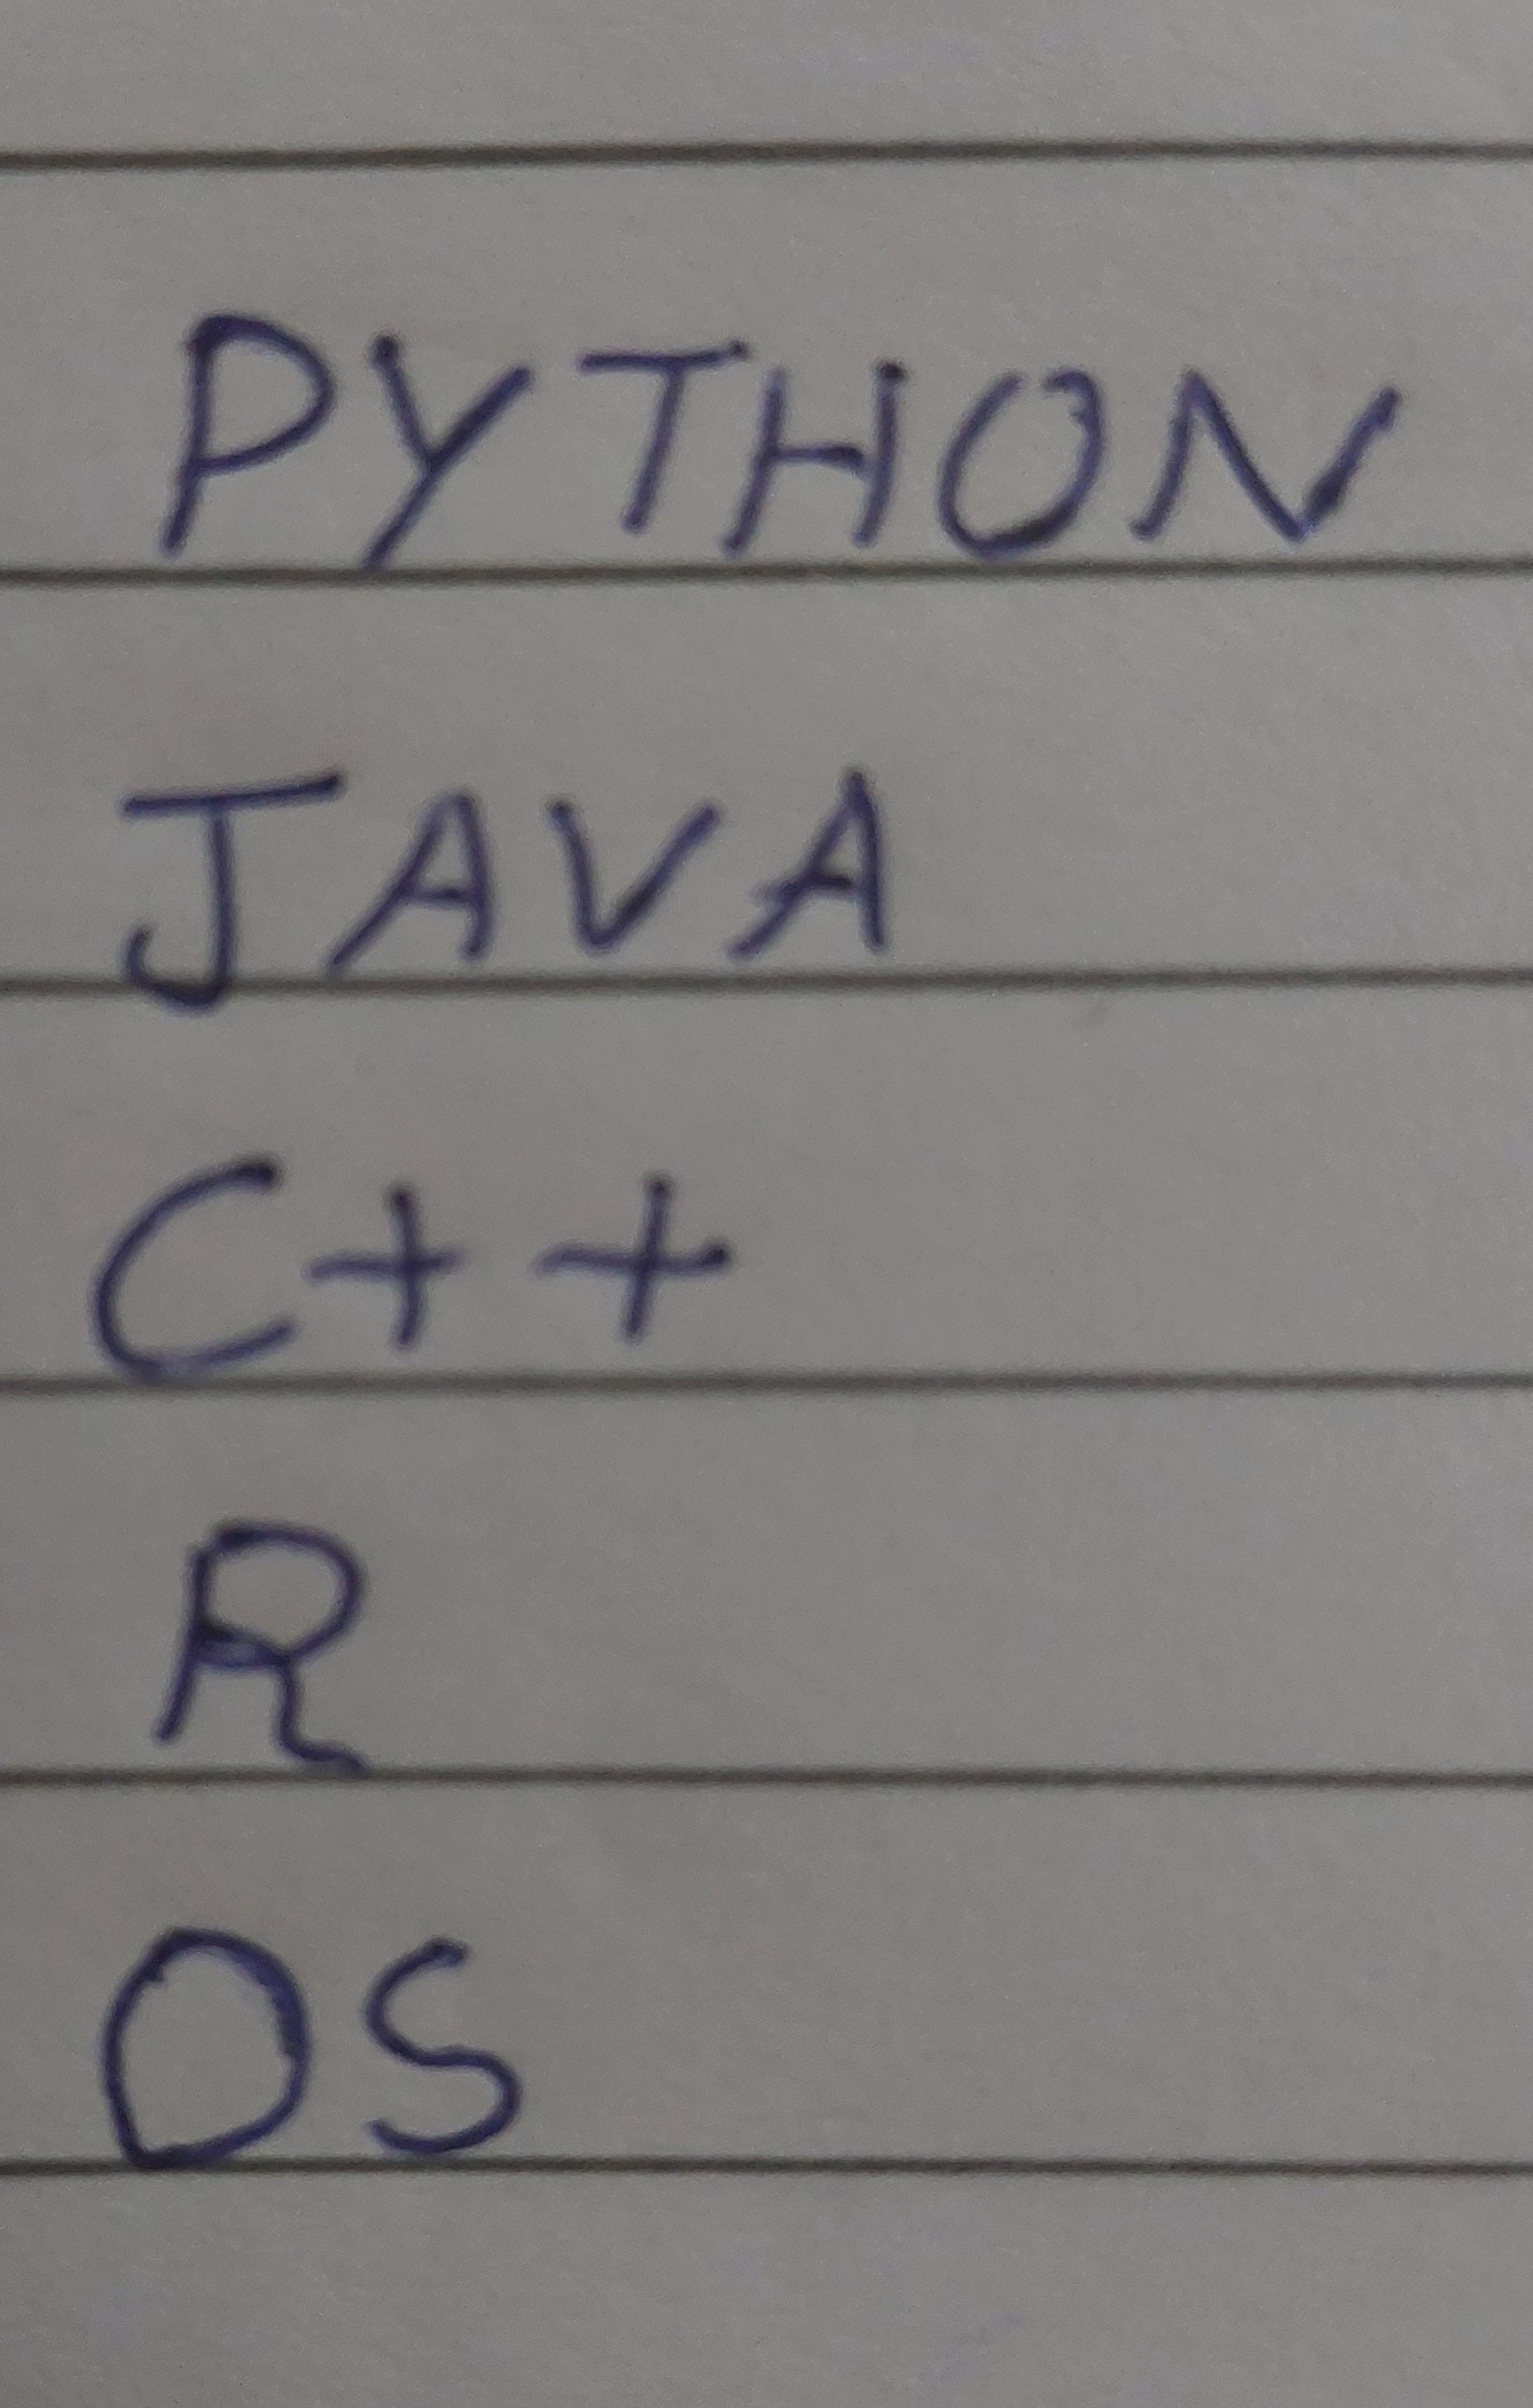 PYTHON
JAVA
C++
R
OS